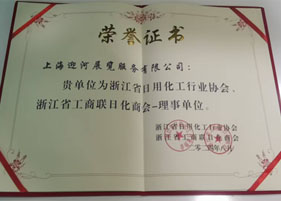 荣誉证书
上海迎河展览服务有限公司：
贵单位为浙江省日用化工行业协会、
浙江省工商联日化商会-理事单位。
浙江省日用化工行业协会
浙江省工商联日化商会
二〇二四年八月